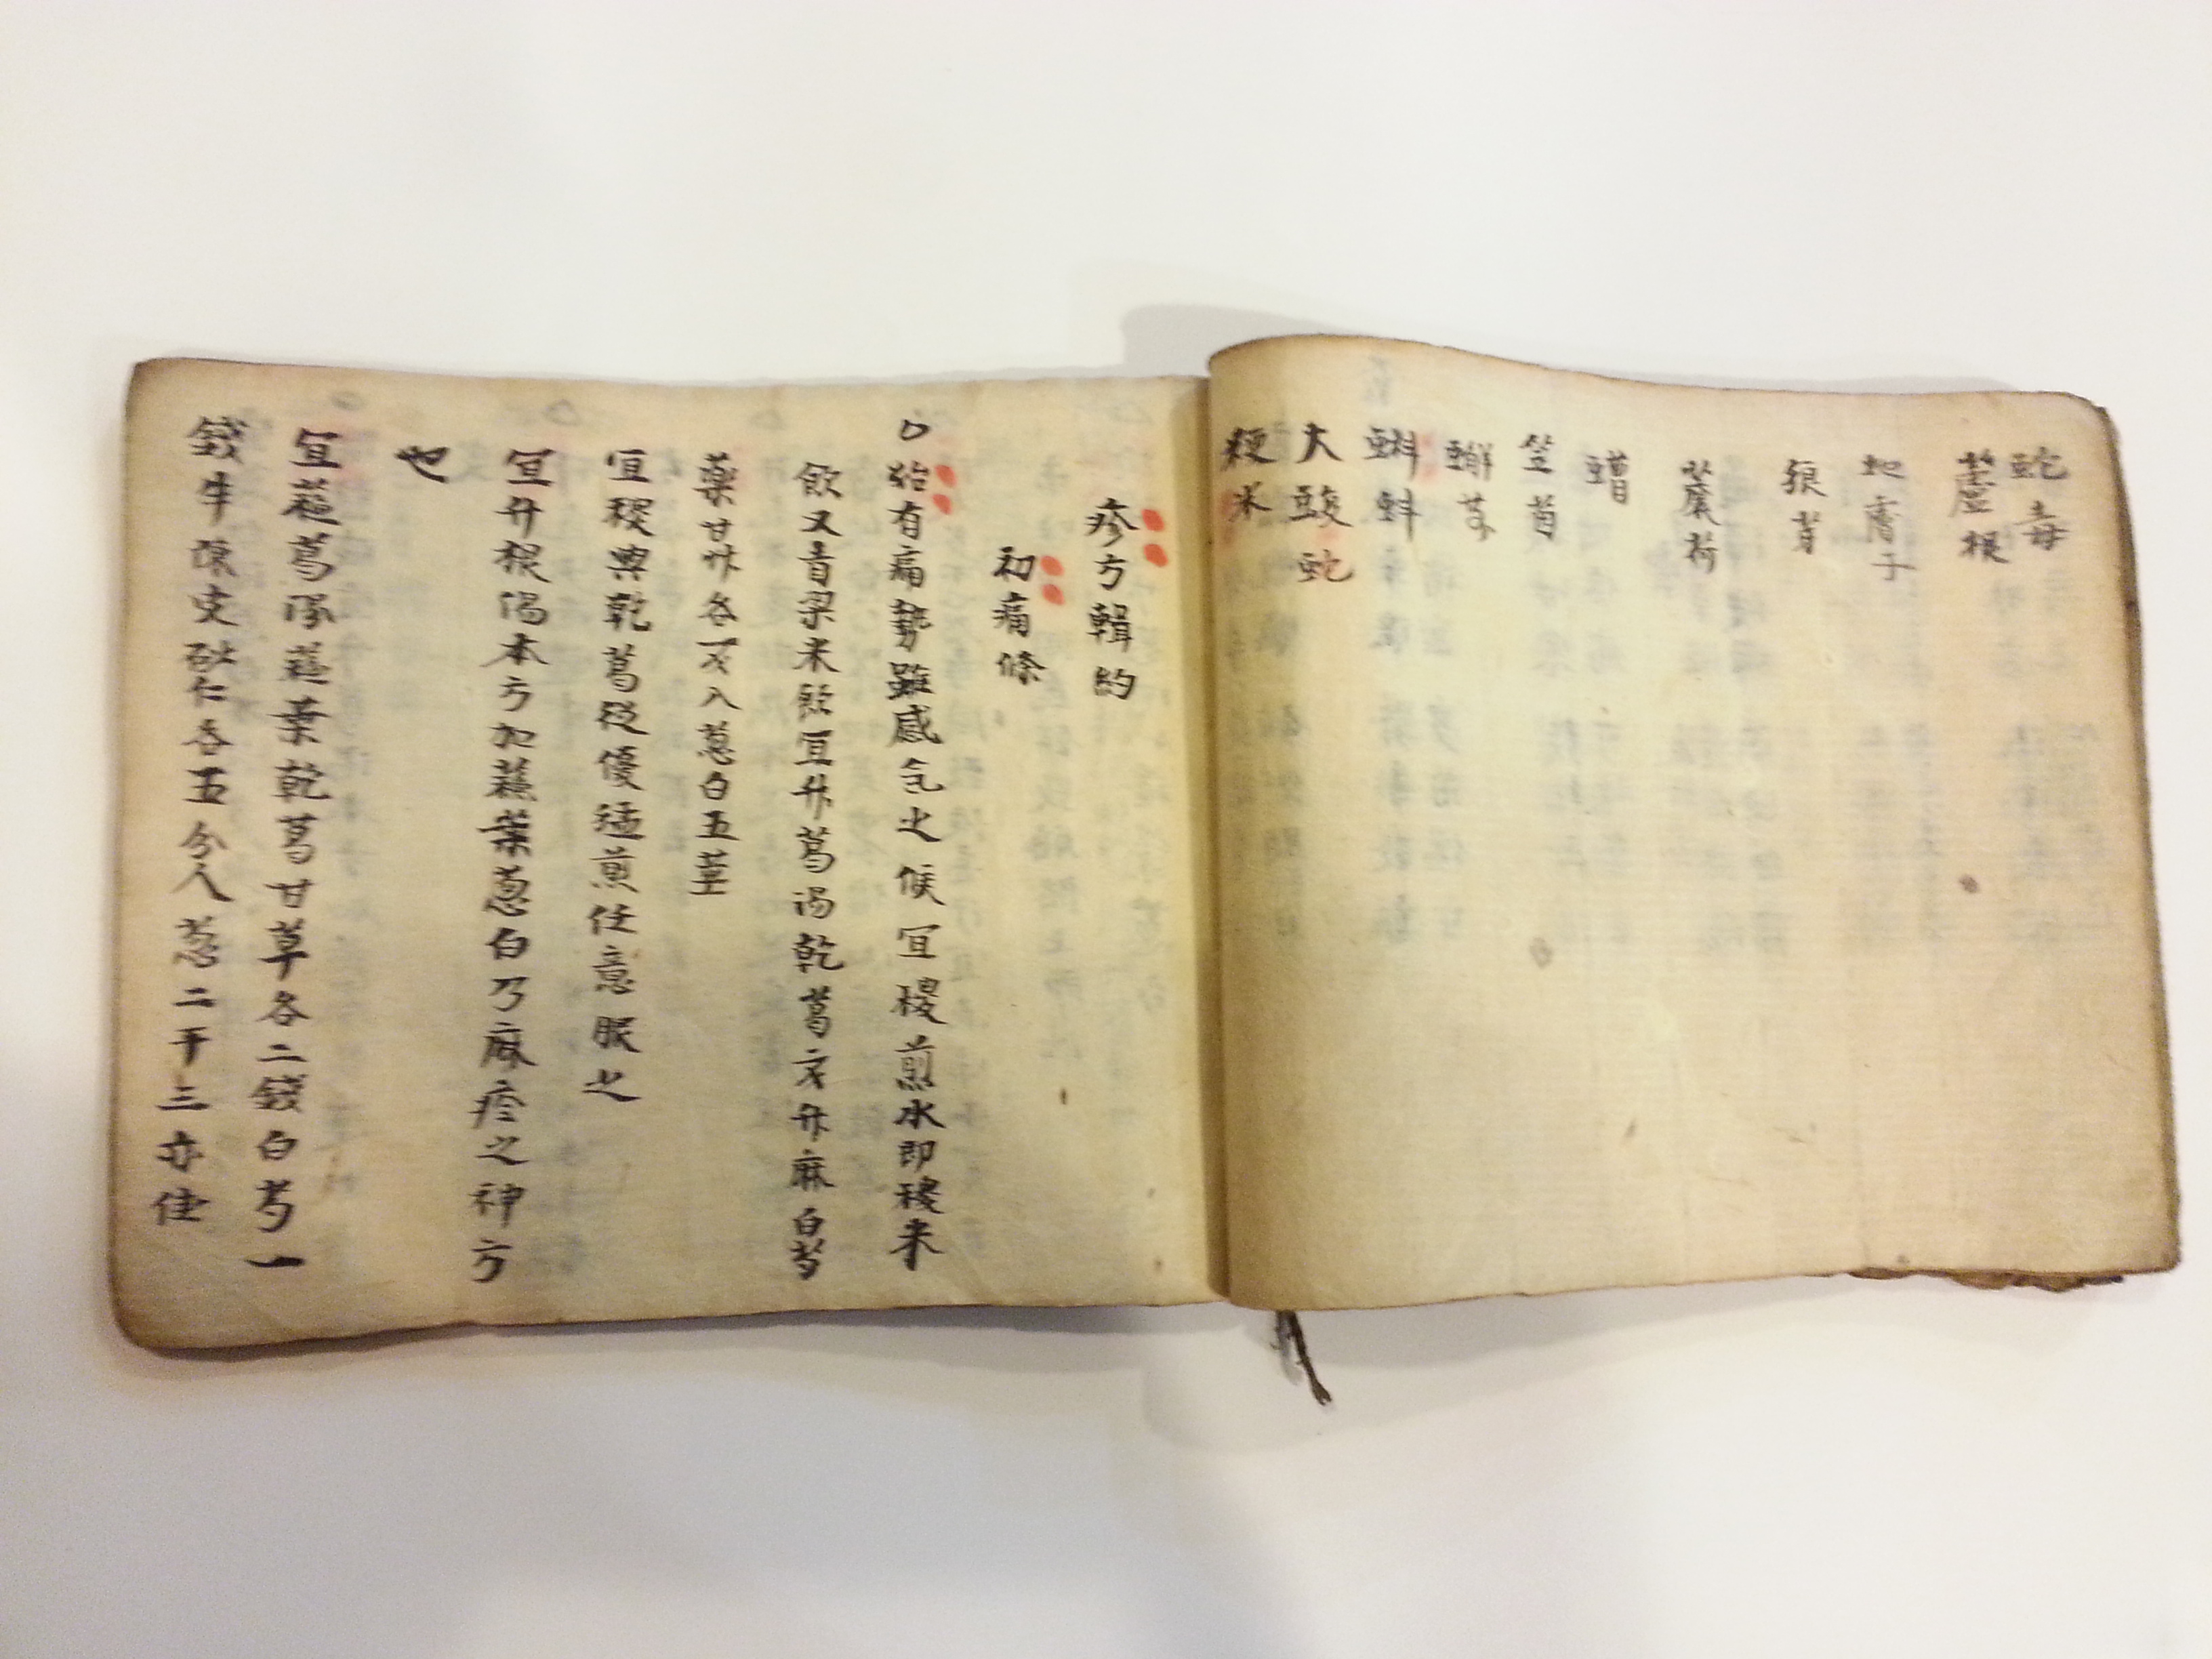 蛇毒
蘆根
地膚子
狼芽
蘘荷
螬
笠茵
蠏芥
蝌蚪
大蝮蛇
粳米
疹方輯約
初痛條
始有痛勢雖感气之候宜稷煎水即稷米
飲又青梁米飲宜升葛湯乾葛文升麻白芍
藥甘艸各一文入葱白五莖
宜稷與乾葛從優猛煎任意服之
宜升根湯本方加蘓葉葱白乃麻疹之神方
也
宜蘓葛湯蘓葉乾葛甘草各二錢白芍一
錢半陳皮砂仁各五分入葱二干三亦佳